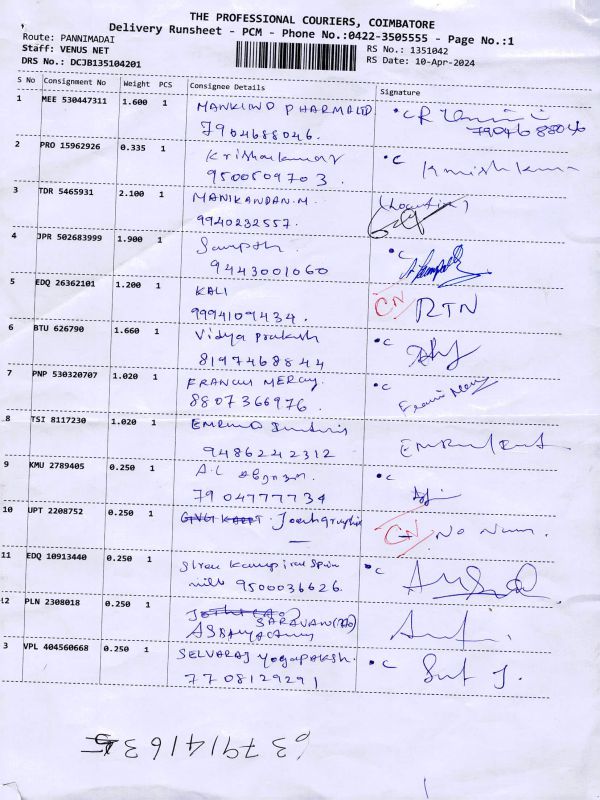 THE PROFESSIONAL COURIERS, COIMBATORE
Delivery Runsheet - PCM - Phone No.:0422-3505555 - Page No.:1
Route: PANNIMADAI
Staff: VENUS NET
RS No.: 1351042
DRS No.: DCJB135104201
RS Date: 10-Apr-2024
S No Consignment No Weight PCS Consignee Details Signature
1 MEE 530447311 1.600 1 MANKIND PHARMA LTD
7904688046. 7904688046
2 PRO 15962926 0.335 1 Krishnakumar
9500509703.
3 TDR 5465931 2.100 1 MANIKANDAN.M (Location)
9940232557.
4 JPR 502683999 1.900 1 Sampath
9443001060
5 EDQ 26362101 1.200 1 KALI CN RTN
9994109434.
6 BTU 626790 1.660 1 Vidya Prakash
8197468844
7 PNP 530320707 1.020 1 FRANCIS MERCY.
8807366976.
8 TSI 8117230 1.020 1
9486242312
9 KMU 2789405 0.250 1 A.L
7904777734
10 UPT 2208752 0.250 1 CN No Num.
11 EDQ 10913440 0.250 1 Shree
mills 9500036626.
12 PLN 2308018 0.250 1 SARAVAN
13 VPL 404560668 0.250 1 SELVARAJ
7708129291
6379141635